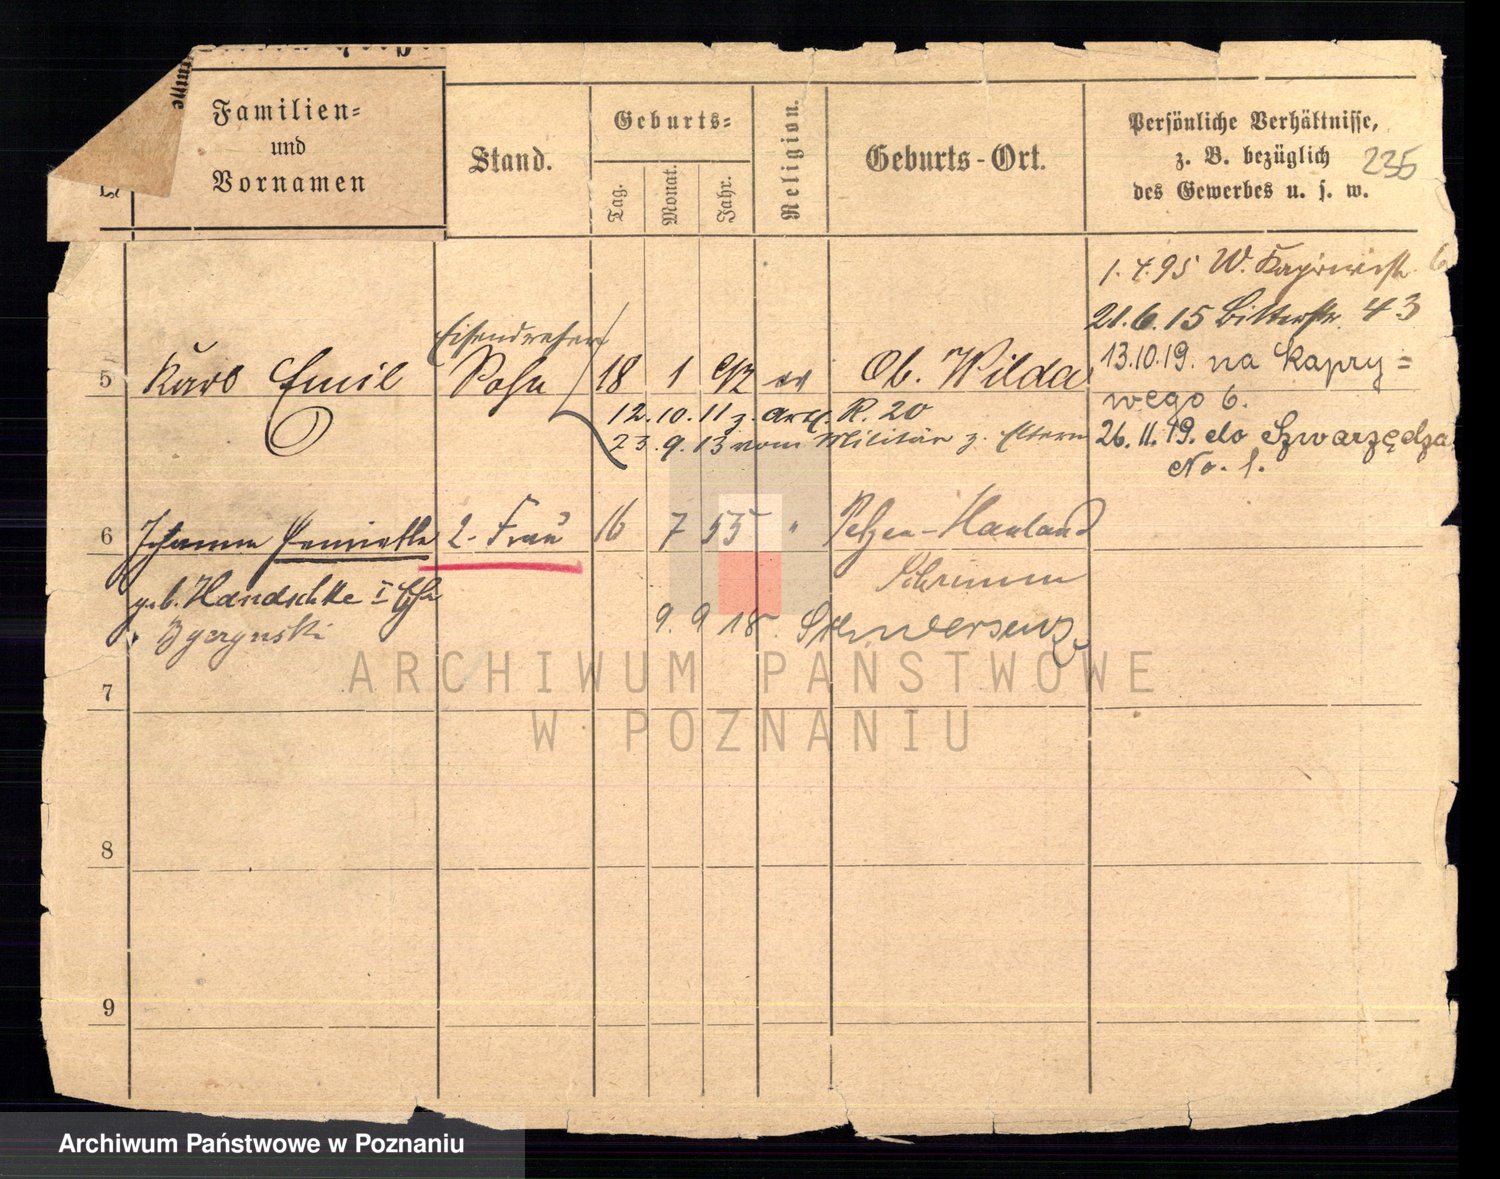 Familien=
und
Vornamen
Stand.
Geburts=
Tag.
Monat.
Jahr.
Religion.
Geburts-Ort.
Persönliche Verhältnisse,
z. B. bezüglich
des Gewerbes u. s. w.
235
1.4.95 W.
21.6.15 Bitterstr. 43
5 Karl Emil
Eisendreher
Sohn
18 1 92 ev Ob. Wilda
13.10.19. na Kapry=
wego 6.
12.10.11 z. Art. R. 20
23.9.13 vom Militär z. Eltern
26.11.19. do Szwarzędza
No. 1.
6 Johanna 2. Frau 16 7 55 "
geb. Handschke I Ehe
Schrimm
9. 9 18. Schwersenz
7
8
9
ARCHIWUM PAŃSTWOWE
W POZNANIU
Archiwum Państwowe w Poznaniu